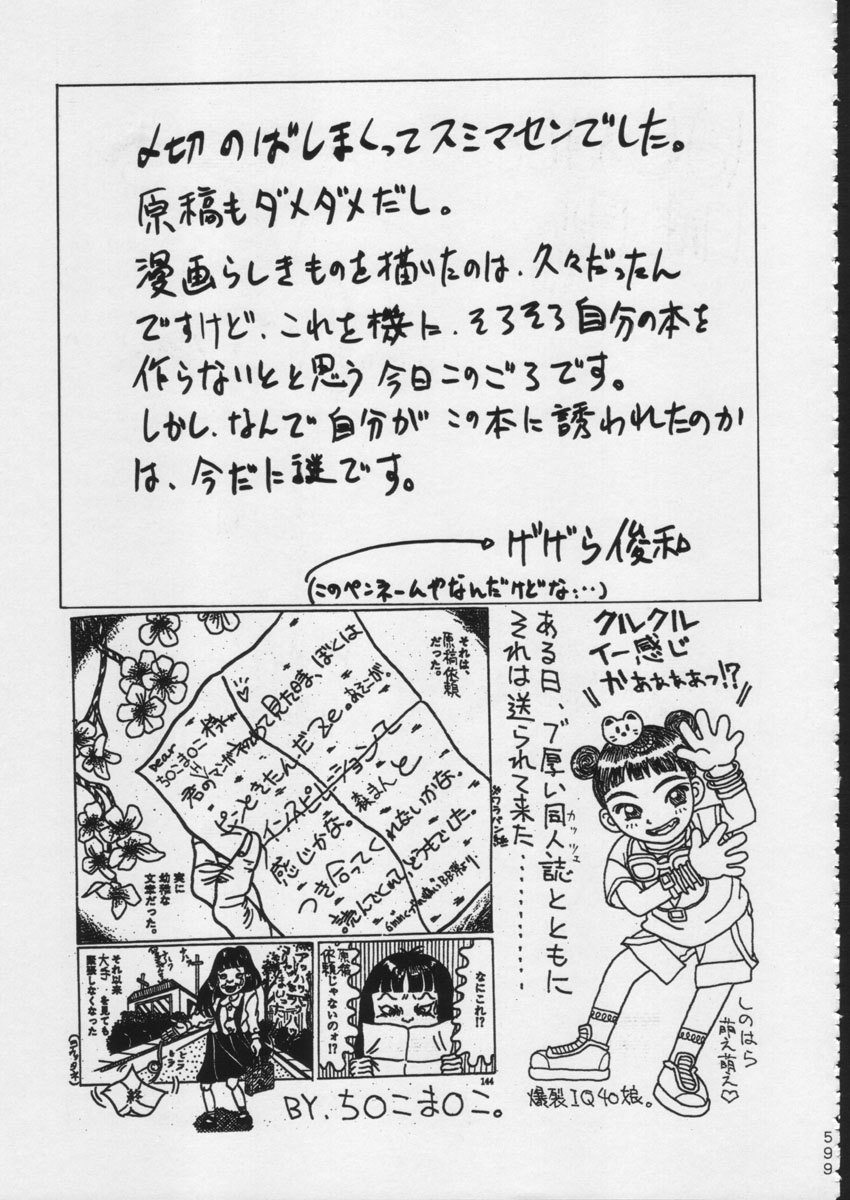 〆切のばしまくってスミマセンでした。
原稿もダメダメだし。
漫画らしきものを描いたのは、久々だったん
ですけど、これを機に、そろそろ自分の本を
作らないとと思う今日このごろです。
しかし、なんで自分がこの本に誘われたのか
は、今だに謎です。
げげら俊和
(このペンネームやなんだけどな…)
クルクル
イー感じ
かぁぁぁぁっ!?
ある日、ブ厚い同人誌とともに
カッツェ
それは送られて来た…………
それは、
原稿依頼
だった。
Dear
ち〇こま〇こ様
君のマンガをはじめて見た時、ぼくは
ピンときたんだZe。
インスピレーション
感じかな。
つき合ってくれないかな。
読んでくれて、どうもでした。
※ワラバン紙
実に
幼稚な
文章だった。
なにこれ!?
原稿
依頼じゃないのォ!?
144
それ以来
大手を見ても
緊張しなくなった
終
BY.ち〇こま〇こ。
しのはら
萌え萌え♡
爆裂IQ40娘。
599